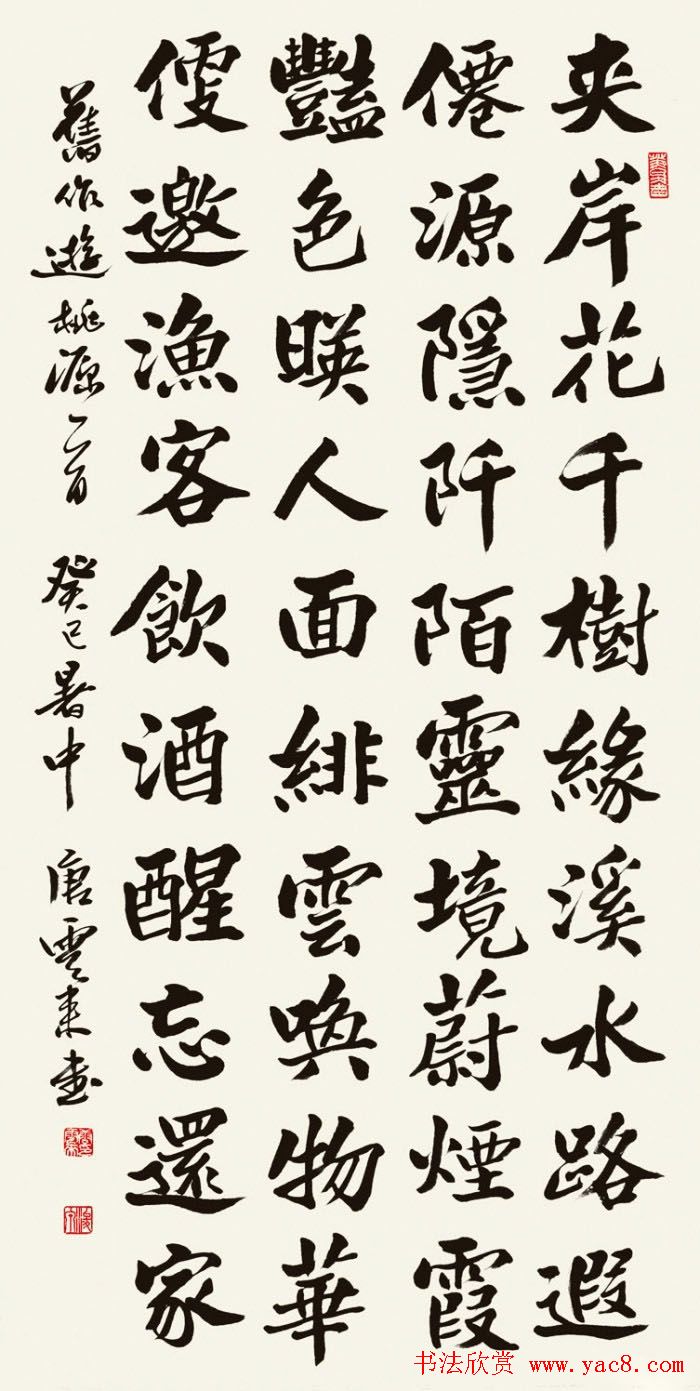 夹岸花千樹緣溪水路遐
僊源隱阡陌靈境蔚煙霞
豔色暎人面緋雲喚物華
便邀漁客飲酒醒忘還家
舊作遊桃源一首 癸巳暑中 唐雲来書
书法欣赏 www.yac8.com